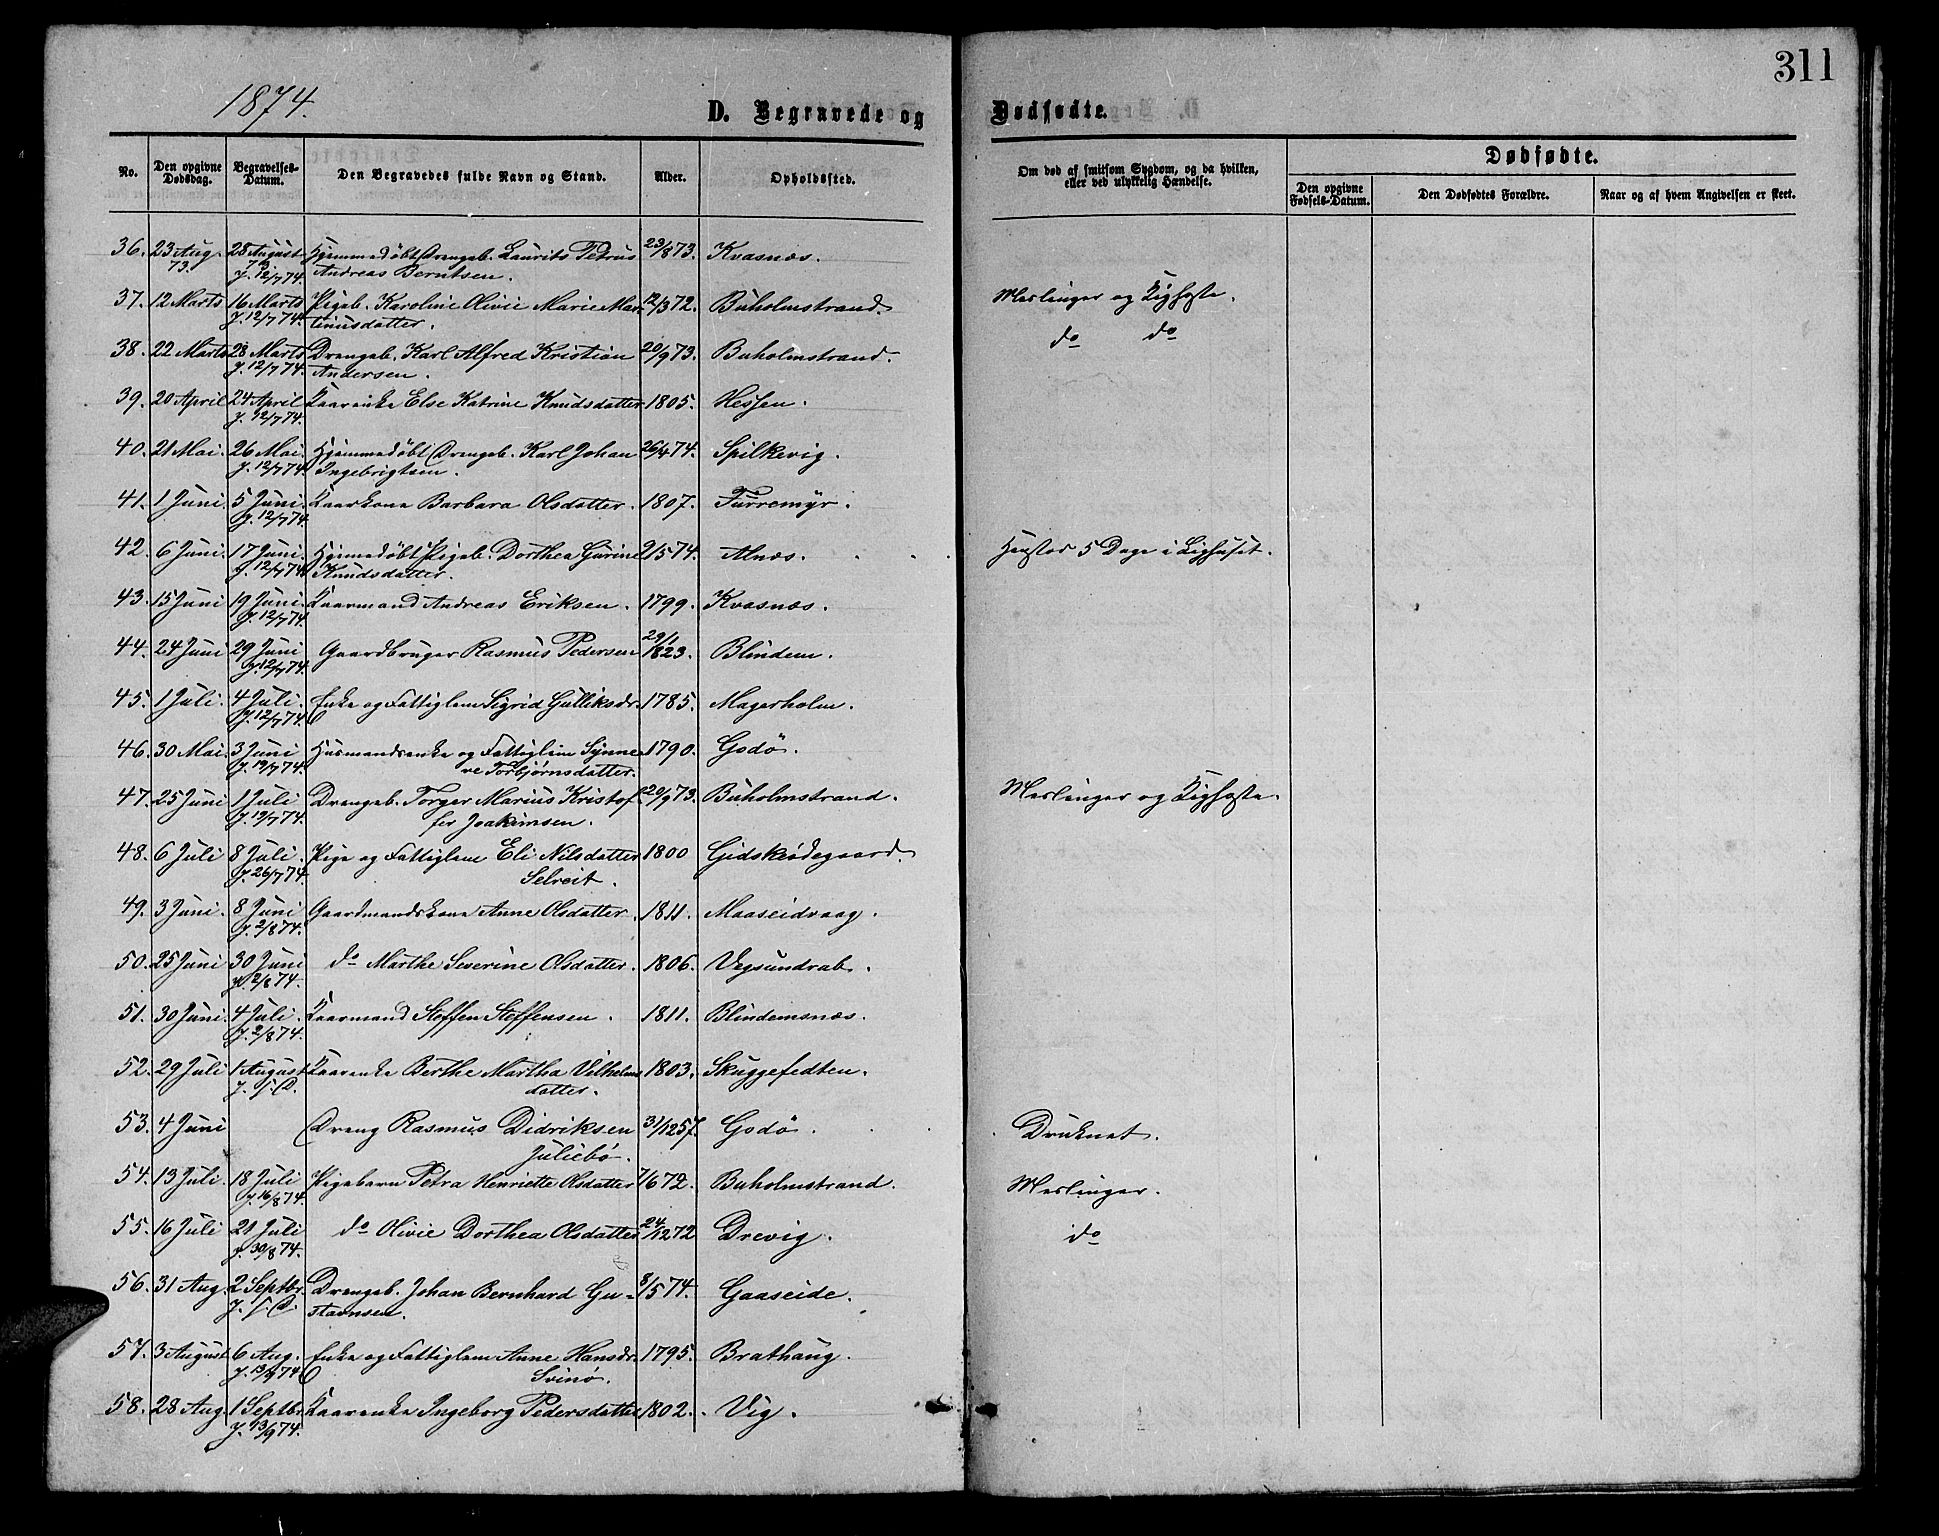 311
1874.
D. Begravede og Dødfødte.
No. Den opgivne Dødsdag. Begravelses-Datum. Den Begravedes fulde Navn og Stand. Alder. Opholdssted. Om død af smitsom Sygdom, og da hvilken, eller ved ulykkelig Hændelse. Dødfødte.
Den opgivne Fødsels-Datum. Den Dødfødtes Forældre. Naar og af hvem Angivelsen er skeet.
36. 23 Aug. 28 August Hjemmedøbt Drengeb. Laurits Petrus 23/873. Kvasnæs.
73. 73 J. 12/774 Andreas Berntsen.
37. 12 Marts 16 Marts Pigeb. Karoline Olivie Marie Mar 12/372. Buholmstrand. Meslinger og Kighoste.
J. 12/774. tinusdatter.
38. 22 Marts 28 Marts Drengeb. Karl Alfred Kristian 20/973. Buholmstrand. do do
J. 12/774. Andersen.
39. 20 April 24 April Kaarenke Else Katrine Knudsdatter 1805. Hessen.
J. 12/774.
40. 21 Mai. 26 Mai. Hjemmedøbt Drengeb. Karl Johan 26/474. Spilkevig.
J. 12/774 Ingebrigtsen.
41. 1 Juni. 5 Juni. Kaarkone Barbara Olsdatter. 1807. Furremyr.
J. 12/774.
42. 6 Juni. 17 Juni. Hjemmedøbt Pigeb. Dorthea Gurine 2/574. Alnæs. Henstod 5 Dage i Lighuset.
J. 12/774 Knudsdatter.
43. 15 Juni 19 Juni. Kaarmand Andreas Eriksen. 1799. Kvasnæs.
J. 12/774.
44. 24 Juni 29 Juni Gaardbruger Rasmus Pedersen 29/1 1823. Blindem.
J. 12/774.
45. 1 Juli. 4 Juli. Enke og Fattiglem Sigrid Gulliksdr. 1785. Magerholm.
J. 12/774.
46. 30 Mai. 3 Juni Husmandsenke og Fattiglem Synne- 1790. Godö.
J. 19/774. ve Torbjørnsdatter.
47. 25 Juni 1 Juli Drengeb. Torger Marius Kristof- 20/973. Buholmstrand. Meslinger og Kighoste.
J. 19/774. fer Joakimsen.
48. 6 Juli 8 Juli. Pige og Fattiglem Eli Nilsdatter 1800 Gidskeødegaard.
J. 26/774. Selreit.
49. 3 Juni. 8 Juni Gaardmandskone Anne Olsdatter. 1811. Maaseidvaag.
J. 2/874.
50. 25 Juni 30 Juni do Marthe Severine Olsdatter. 1806. Vegsundrab.
J. 2/874.
51. 30 Juni. 4 Juli. Kaarmand Steffen Steffensen. 1811. Blindemsnæs.
J. 2/874.
52. 29 Juli 1 August Kaarenke Berthe Martha Vilhelms 1803. Skuggefedten.
J. s. D. datter.
53. 4 Juni Dreng Rasmus Didriksen 31/1257. Godö. Druknet.
Juliebø.
54. 13 Juli. 18 Juli Pigebarn Petra Henriette Olsdatter 7/672. Buholmstrand. Meslinger.
J. 16/874
55. 16 Juli 21 Juli do Olivie Dorthea Olsdatter 24/1272 Drevig. do
J. 30/874.
56. 31 Aug. 2 Septbr. Drengeb. Johan Bernhard Gu- 8/574. Gaaseide.
J. s. D. stavnsen.
57. 3 August 6 Aug. Enke og Fattiglem Anne Hansdr. 1795. Brathaug.
J. 13/974 Svinø.
58. 28 Aug. 1 Septbr. Kaarenke Ingeborg Pedersdatter 1802. Vig.
J. 13/974.